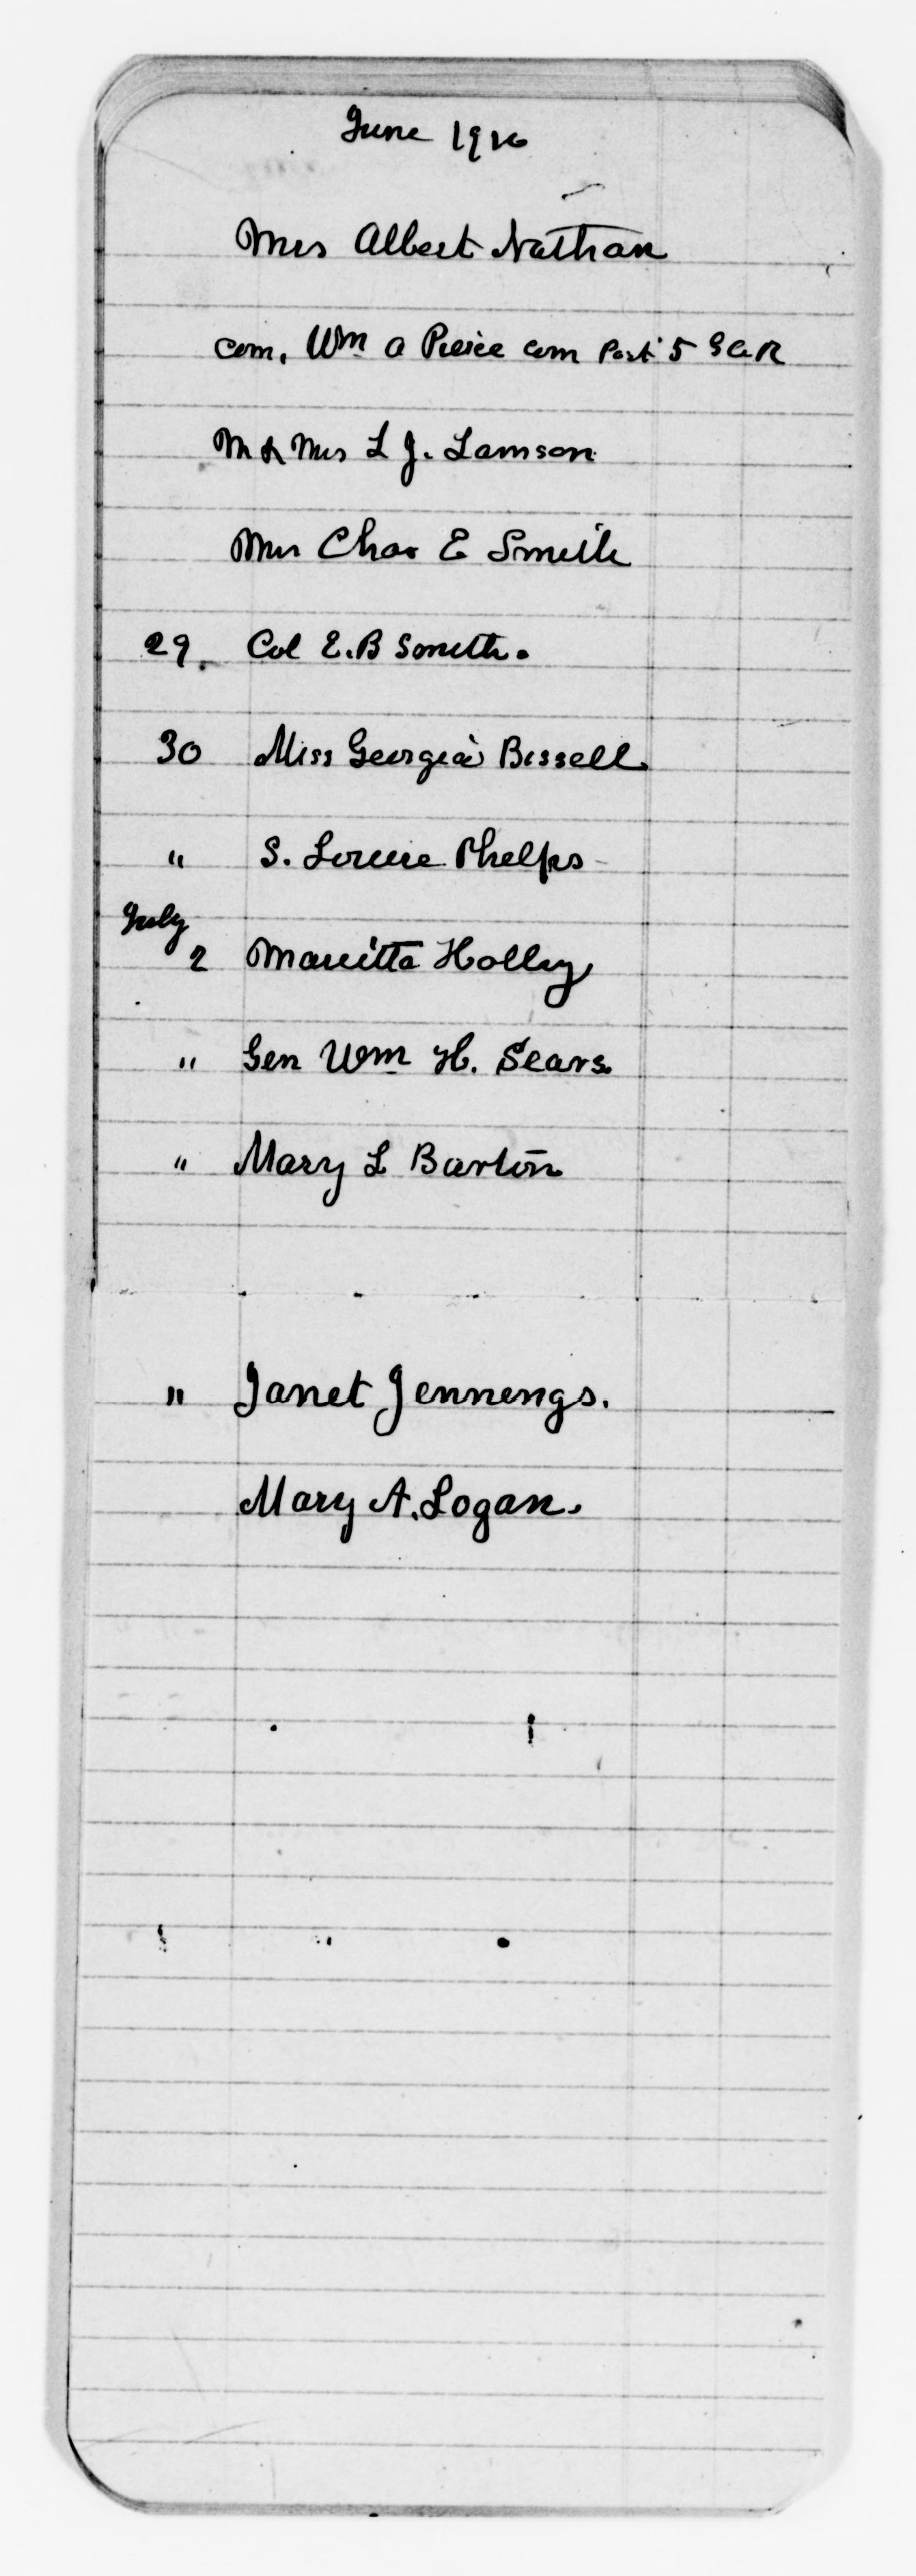 June 1910
Mrs Albert Nathan
Com. Wm A Peirce Com Post 5 GAR
M & Mrs L J. Lamson
Mrs Chas E Smith
29. Col E.B Smith.
30 Miss Georgia Bissell.
" S. Louise Phelps
July
2 Marietta Holley
" Gen Wm H. Sears.
" Mary L Barton
" Janet Jennings.
Mary A. Logan.